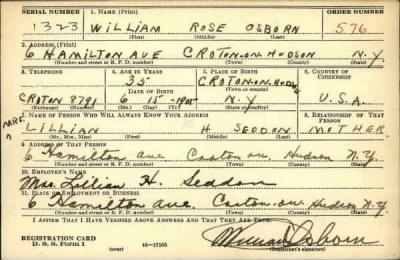 SERIAL NUMBER 1. NAME (Print) ORDER NUMBER
1323 WILLIAM ROSE OSBORN 576
(First) (Middle) (Last)
2. ADDRESS (Print)
6 HAMILTON AVE CROTON-ON-HUDSON N.Y
(Number and street or R. F. D. number) (Town) (County) (State)
3. TELEPHONE 4. AGE IN YEARS 5. PLACE OF BIRTH 6. COUNTRY OF CITIZENSHIP
35 CROTON-ON-HUDSON
DATE OF BIRTH (Town or county)
CROTON 8791 6 15 1905 N.Y U.S.A.
(Exchange) (Number) (Mo.) (Day) (Yr.) (State or country)
7. NAME OF PERSON WHO WILL ALWAYS KNOW YOUR ADDRESS 8. RELATIONSHIP OF THAT PERSON
MRS. LILLIAN H SEDDON MOTHER
(Mr., Mrs., Miss) (First) (Middle) (Last)
9. ADDRESS OF THAT PERSON
6 Hamilton Ave Croton-on Hudson N.Y.
(Number and street or R. F. D. number) (Town) (County) (State)
10. EMPLOYER'S NAME
Mrs. Lillian H. Seddon
11. PLACE OF EMPLOYMENT OR BUSINESS
6 Hamilton Ave. Croton-on-Hudson N.Y
(Number and street or R. F. D. number) (Town) (County) (State)
I AFFIRM THAT I HAVE VERIFIED ABOVE ANSWERS AND THAT THEY ARE TRUE.
REGISTRATION CARD
D. S. S. Form 1 (over) 16—17105 (Registrant's signature)
Osborn